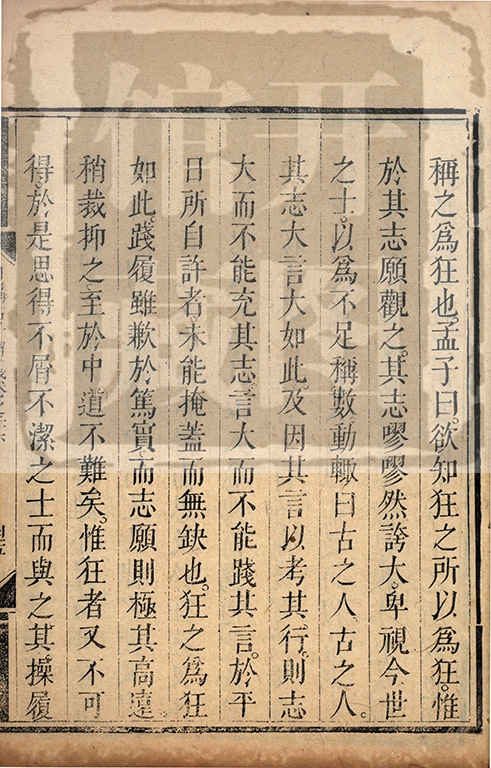 稱之爲狂也。孟子曰。欲知狂之所以爲狂。惟
於其志願觀之。其志嘐嘐然誇大。卑視今世
之士。以爲不足稱數。動輙曰古之人古之人。
其志大言大如此。及因其言以考其行。則志
大而不能充其志。言大而不能踐其言。於平
日所自許者。未能掩蓋而無缺也。狂之爲狂
如此。踐履雖歉於篤實。而志願則極其高遠。
稍裁抑之至於中道不難矣。惟狂者又不可
得。於是思得不屑不潔之士而與之。其操履